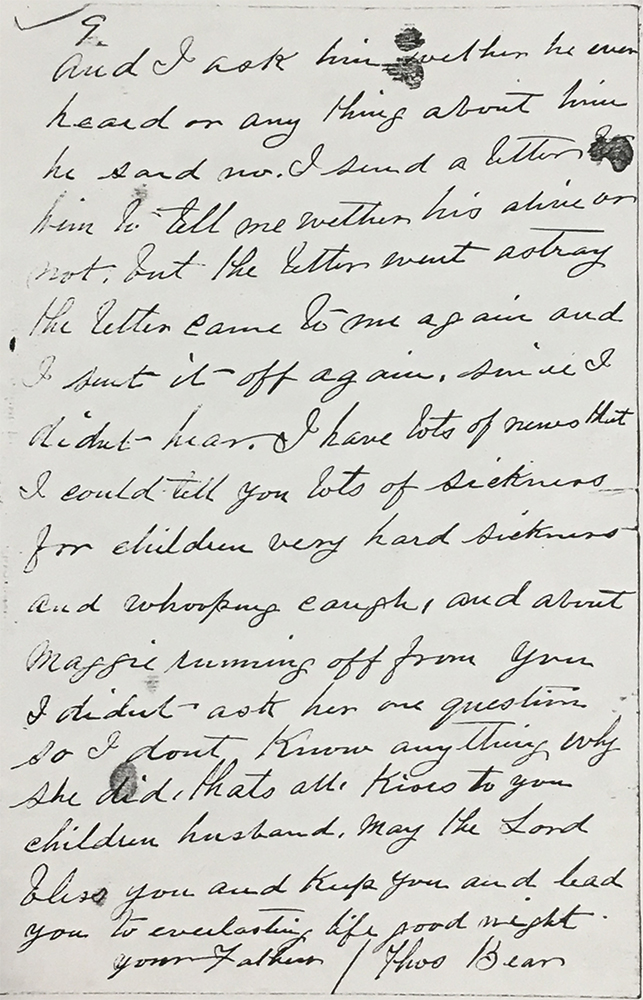 9.
And I ask him wether he ever
heard or any thing about him
he said no. I send a letter to
him to tell me wether his alive or
not. but the letter went astray
the letter came to me again and
I sent it off again. since I
didnt hear. I have lots of news that
I could tell you lots of sickness
for children very hard sickness
and whooping caugh, and about
Maggie running off from you
I didnt ask her one question
so I dont Know anything why
she did. thats all. Kises to you
children husband. May the Lord
bless you and Keep you and lead
you to everlasting life good night.
your Father / Thos Bear